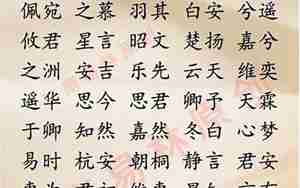 佩宛 之慕 羽其 白安 兮遥
攸君 星言 昭文 楚扬 嘉兮
之洲 安吉 乐先 云天 维奕
遥华 思今 思君 卿予 天霖
于卿 知然 嘉然 冬白 心梦
易时 杭安 朝桐 静言 君安